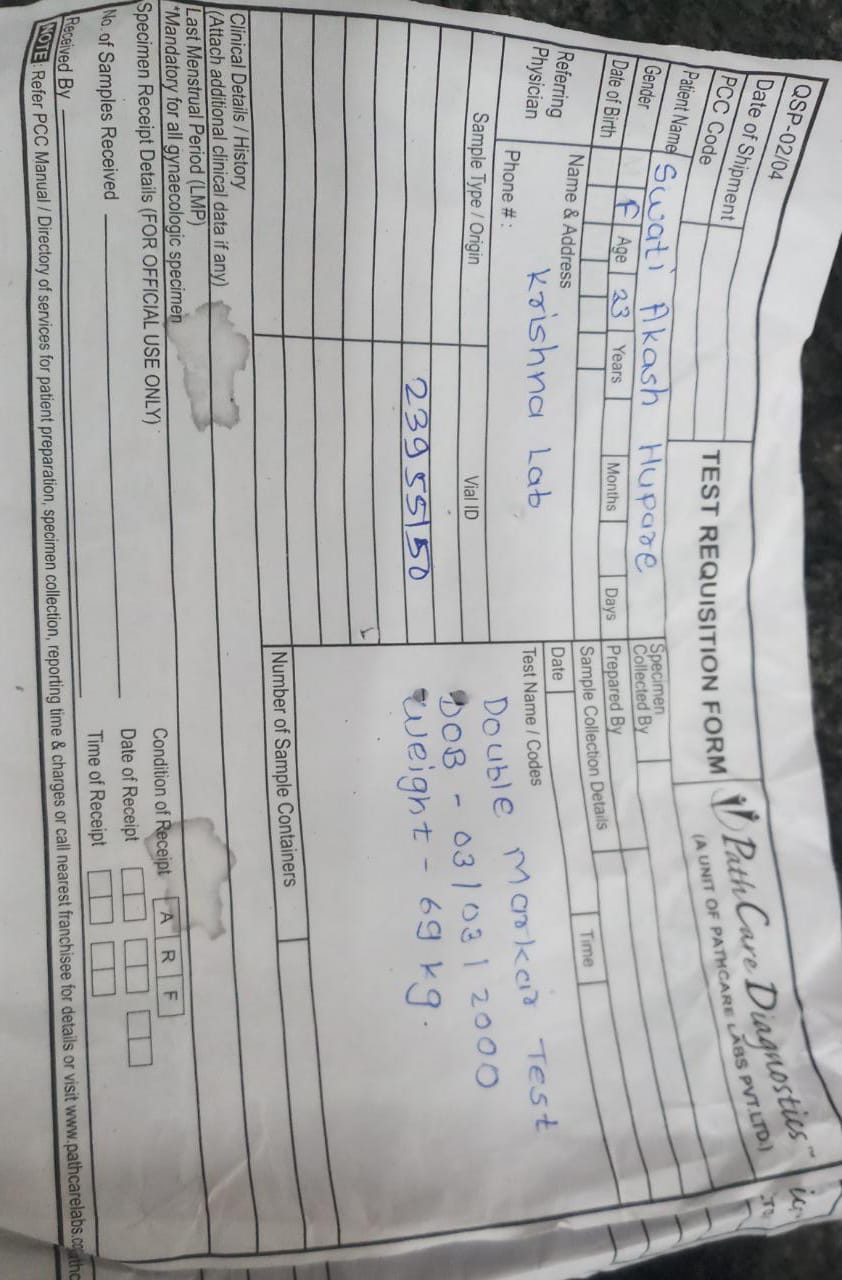 QSP-02/04
Date of Shipment
PCC Code
TEST REQUISITION FORM
PathCare Diagnostics™
(A UNIT OF PATHCARE LABS PVT.LTD.)
Patient Name Swati Akash Hupare
Gender F Age 23 Years Months Days
Date of Birth
Specimen Collected By
Prepared By
Sample Collection Details
Date Time
Referring Physician
Name & Address
Krishna Lab
Phone # :
Sample Type / Origin
Vial ID
Test Name / Codes
23955150
Double Marker Test
DOB - 03/03/2000
Weight - 69 kg.
Number of Sample Containers
Clinical Details / History
(Attach additional clinical data if any)
Last Menstrual Period (LMP)
*Mandatory for all gynaecologic specimen
Specimen Receipt Details (FOR OFFICIAL USE ONLY)
Condition of Receipt A R F
No. of Samples Received
Date of Receipt
Received By
Time of Receipt
NOTE : Refer PCC Manual / Directory of services for patient preparation, specimen collection, reporting time & charges or call nearest franchisee for details or visit www.pathcarelabs.co